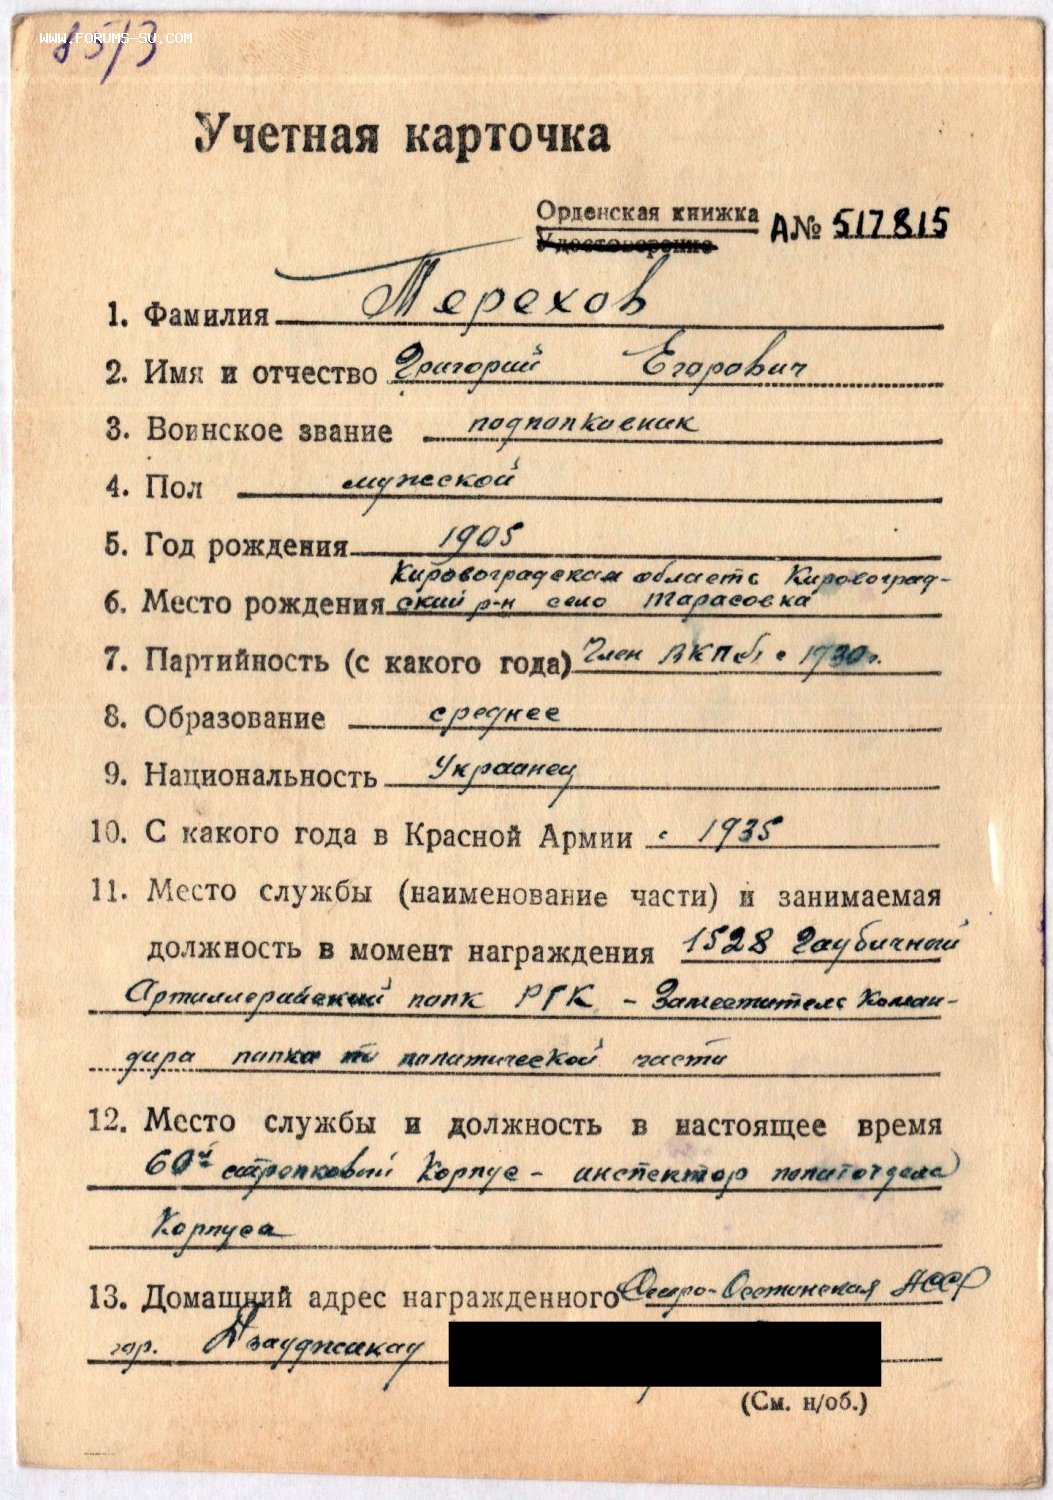 WWW.FORUMS-SU.COM
85/3
Учетная карточка
Орденская книжка
Удостоверение
А№ 517815
1. Фамилия Терехов
2. Имя и отчество Григорий Егорович
3. Воинское звание подполковник
4. Пол мужской
5. Год рождения 1905
Кировоградская область Кировоград-
6. Место рождения ский р-н село Тарасовка
7. Партийность (с какого года) Член ВКПб с 1930 г.
8. Образование среднее
9. Национальность Украинец
10. С какого года в Красной Армии с 1935
11. Место службы (наименование части) и занимаемая
должность в момент награждения 1528 Гаубичный
Артиллерийский полк РГК – Заместитель Коман-
дира полка по политической части
12. Место службы и должность в настоящее время
60й стрелковый Корпус – инспектор политотдела
Корпуса
13. Домашний адрес награжденного Северо-Осетинская АССР
гор. Дзауджикау
(См. н/об.)